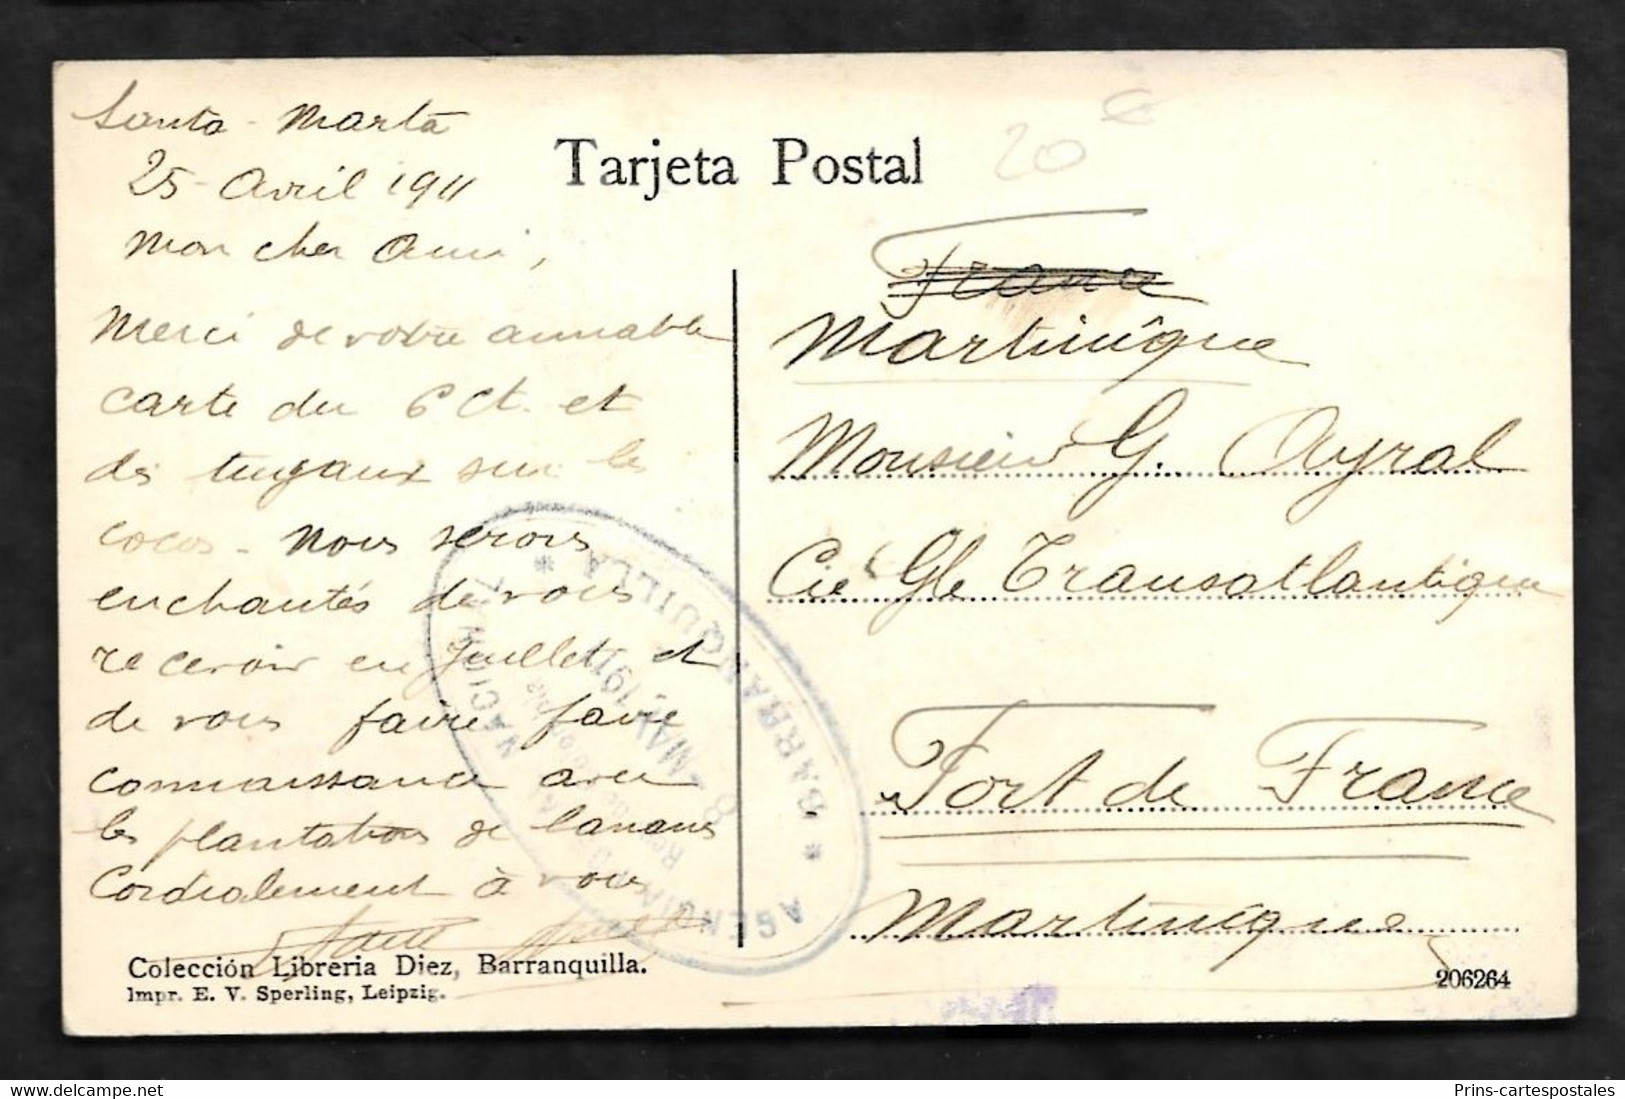 Santa-Marta
25-Avril 1911
Mon cher Ami,
Merci de votre aimable
carte du 6 ct. et
des tuyaux sur les
cocos - Nous serons
enchantés de vous
recevoir en Juillet et
de vous faire faire
connaissance avec
les plantations de bananes
Cordialement à vous
Tarjeta Postal
20 €
France
Martinique
Monsieur G. Ayral
Cie Gle Transatlantique
Fort de France
Martinique
AGENCIA NACIONAL
* BARRANQUILLA *
8 - MAY. 1911
Colección Libreria Diez, Barranquilla.
Impr. E. V. Sperling, Leipzig.
206264
Prins-cartespostales